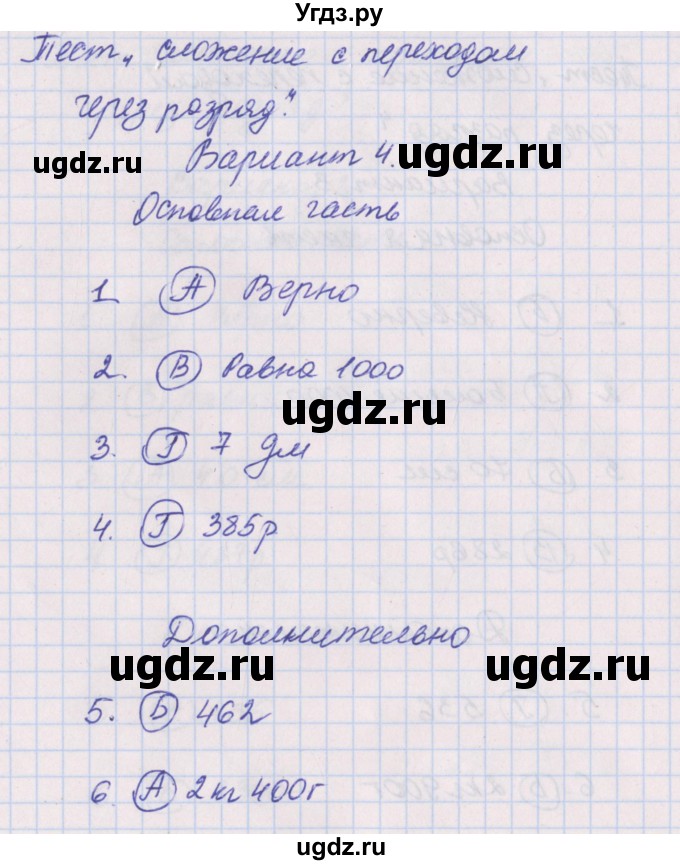 Угдз.ру
Тест „ сложение с переходом
через разряд".
ugdz.ru
Вариант 4.
ugdz.ru
Основная часть
1. А Верно
2. В Равна 1000
ugdz.ru
3. Г 7 дм
4. Г 385р
Дополнительно
ugdz.ru ugdz.ru
5. Б 462
6. А 2 кг 400г
ugdz.ru